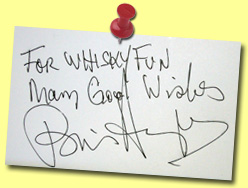 FOR WHISKYFUN
Many Good Wishes